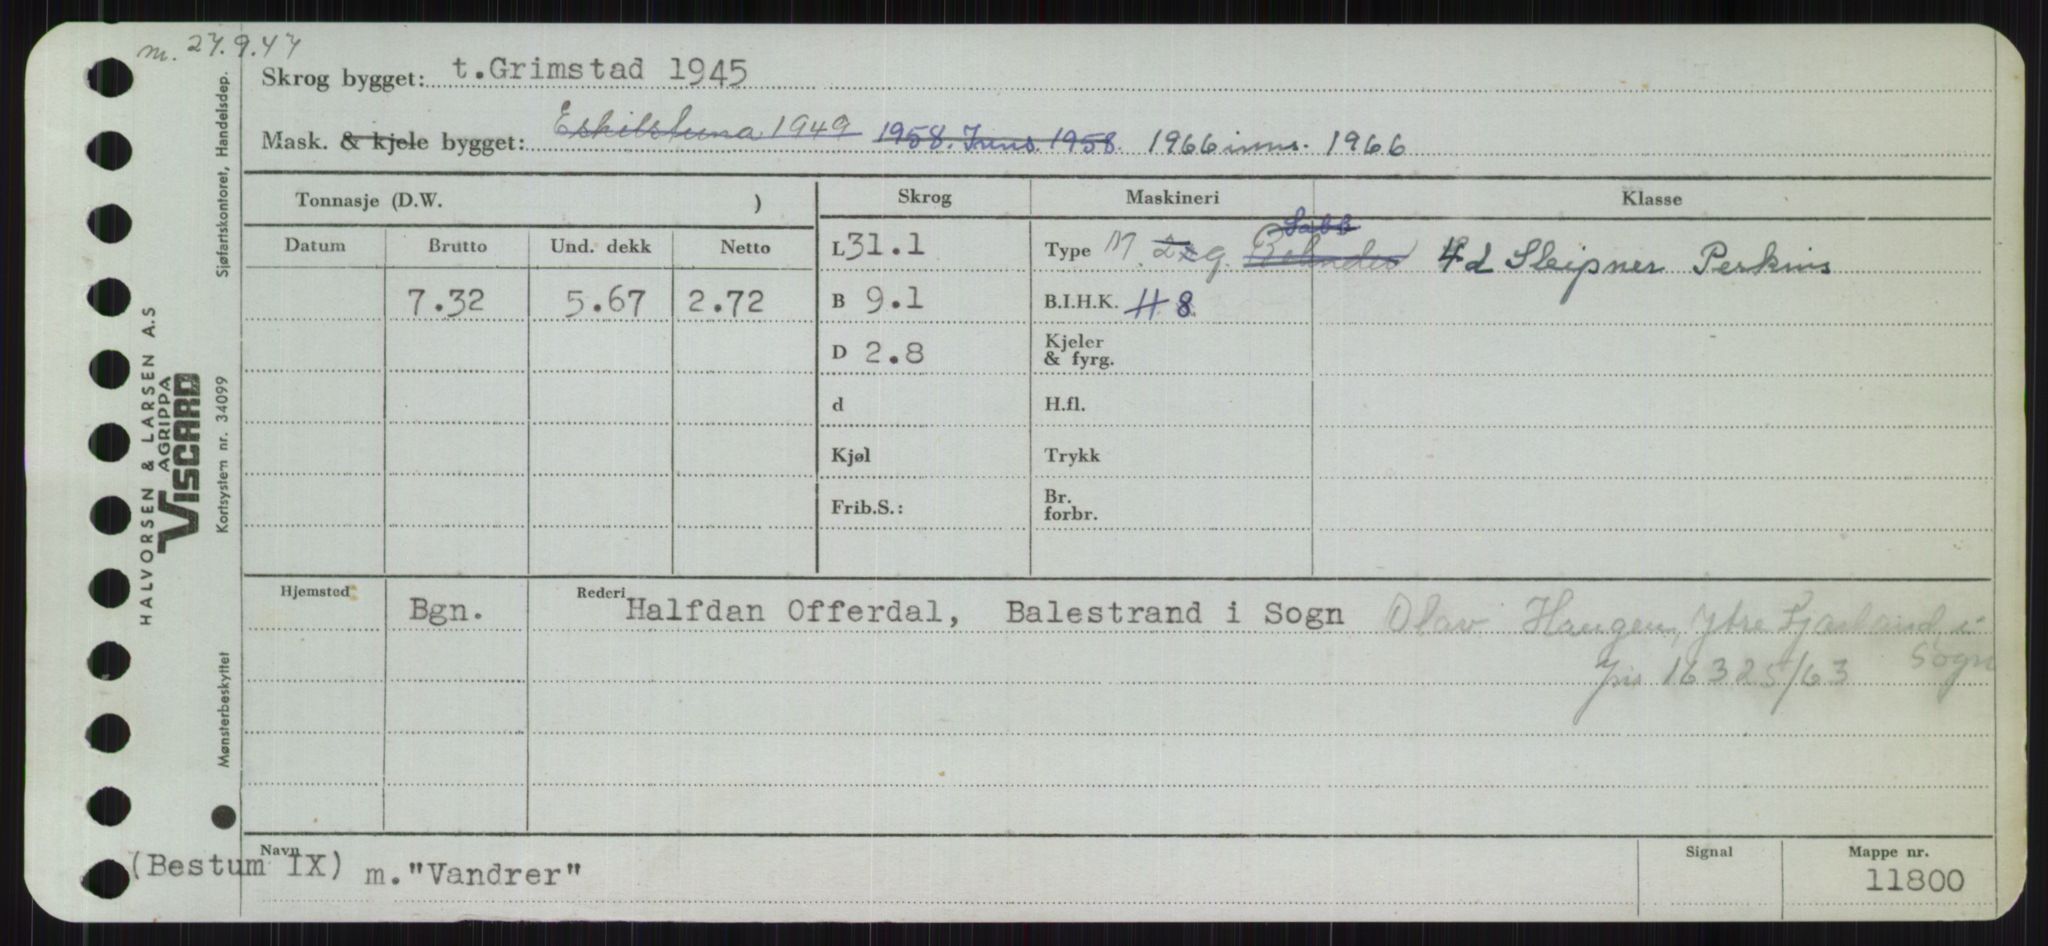 m. 27.9.47
Skrog bygget: t.Grimstad 1945
Mask. & kjele bygget: Eskilstuna 1949 1958. Inns. 1958. 1966 inns. 1966
Tonnasje (D.W. )
Skrog Maskineri Klasse
Datum Brutto Und. dekk Netto
L 31.1 Type M. 2xg. Bolinder Sabb 4d Sleipner Perkins
7.32 5.67 2.72 B 9.1 B.I.H.K. 8
D 2.8 Kjeler & fyrg.
d H.fl.
Kjøl Trykk
Frib.S.: Br. forbr.
Hjemsted Bgn. Rederi Halfdan Offerdal, Balestrand i Sogn Olav Haugen, Ytre Fjærland, i Sogn
16325/63
(Bestum IX) Navn m."Vandrer" Signal Mappe nr. 11800
HALVORSEN & LARSEN A.S
AGRIPPA
VISCARD
Mønsterbeskyttet Kortsystem nr. 34099 Sjøfartskontoret, Handelsdep.